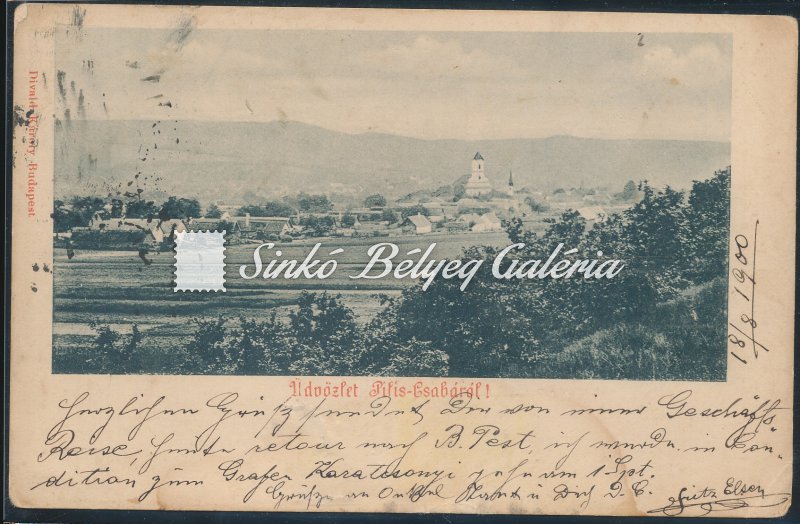 Divald Károly, Budapest
Sinkó Bélyeg Galéria
18/8 1900
Üdvözlet Pilis-Csabáról!
herzlichen Gruß sendet, Der von einer Geschäfts
Reise, heute retour nach B.Pest, ich wurde in Con-
dition zum Grafen Karatsonyi am 1 Spt
Grüße an Onkel u Dich
Fritz Elsen